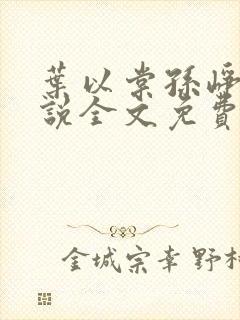 葉以棠孫崢
說全文免費
金城宗幸野村